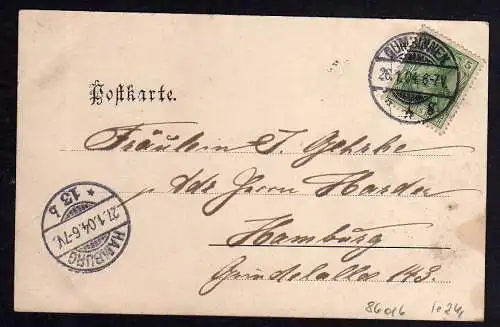 GUMBINNEN
26.1.04.6-7V.
5
Postkarte.
Fräulein J. Gehrke
Adr Herrn Harder
Hamburg
Grindelallee 143.
HAMBURG
27.1.04.6-7V.
* 13 b